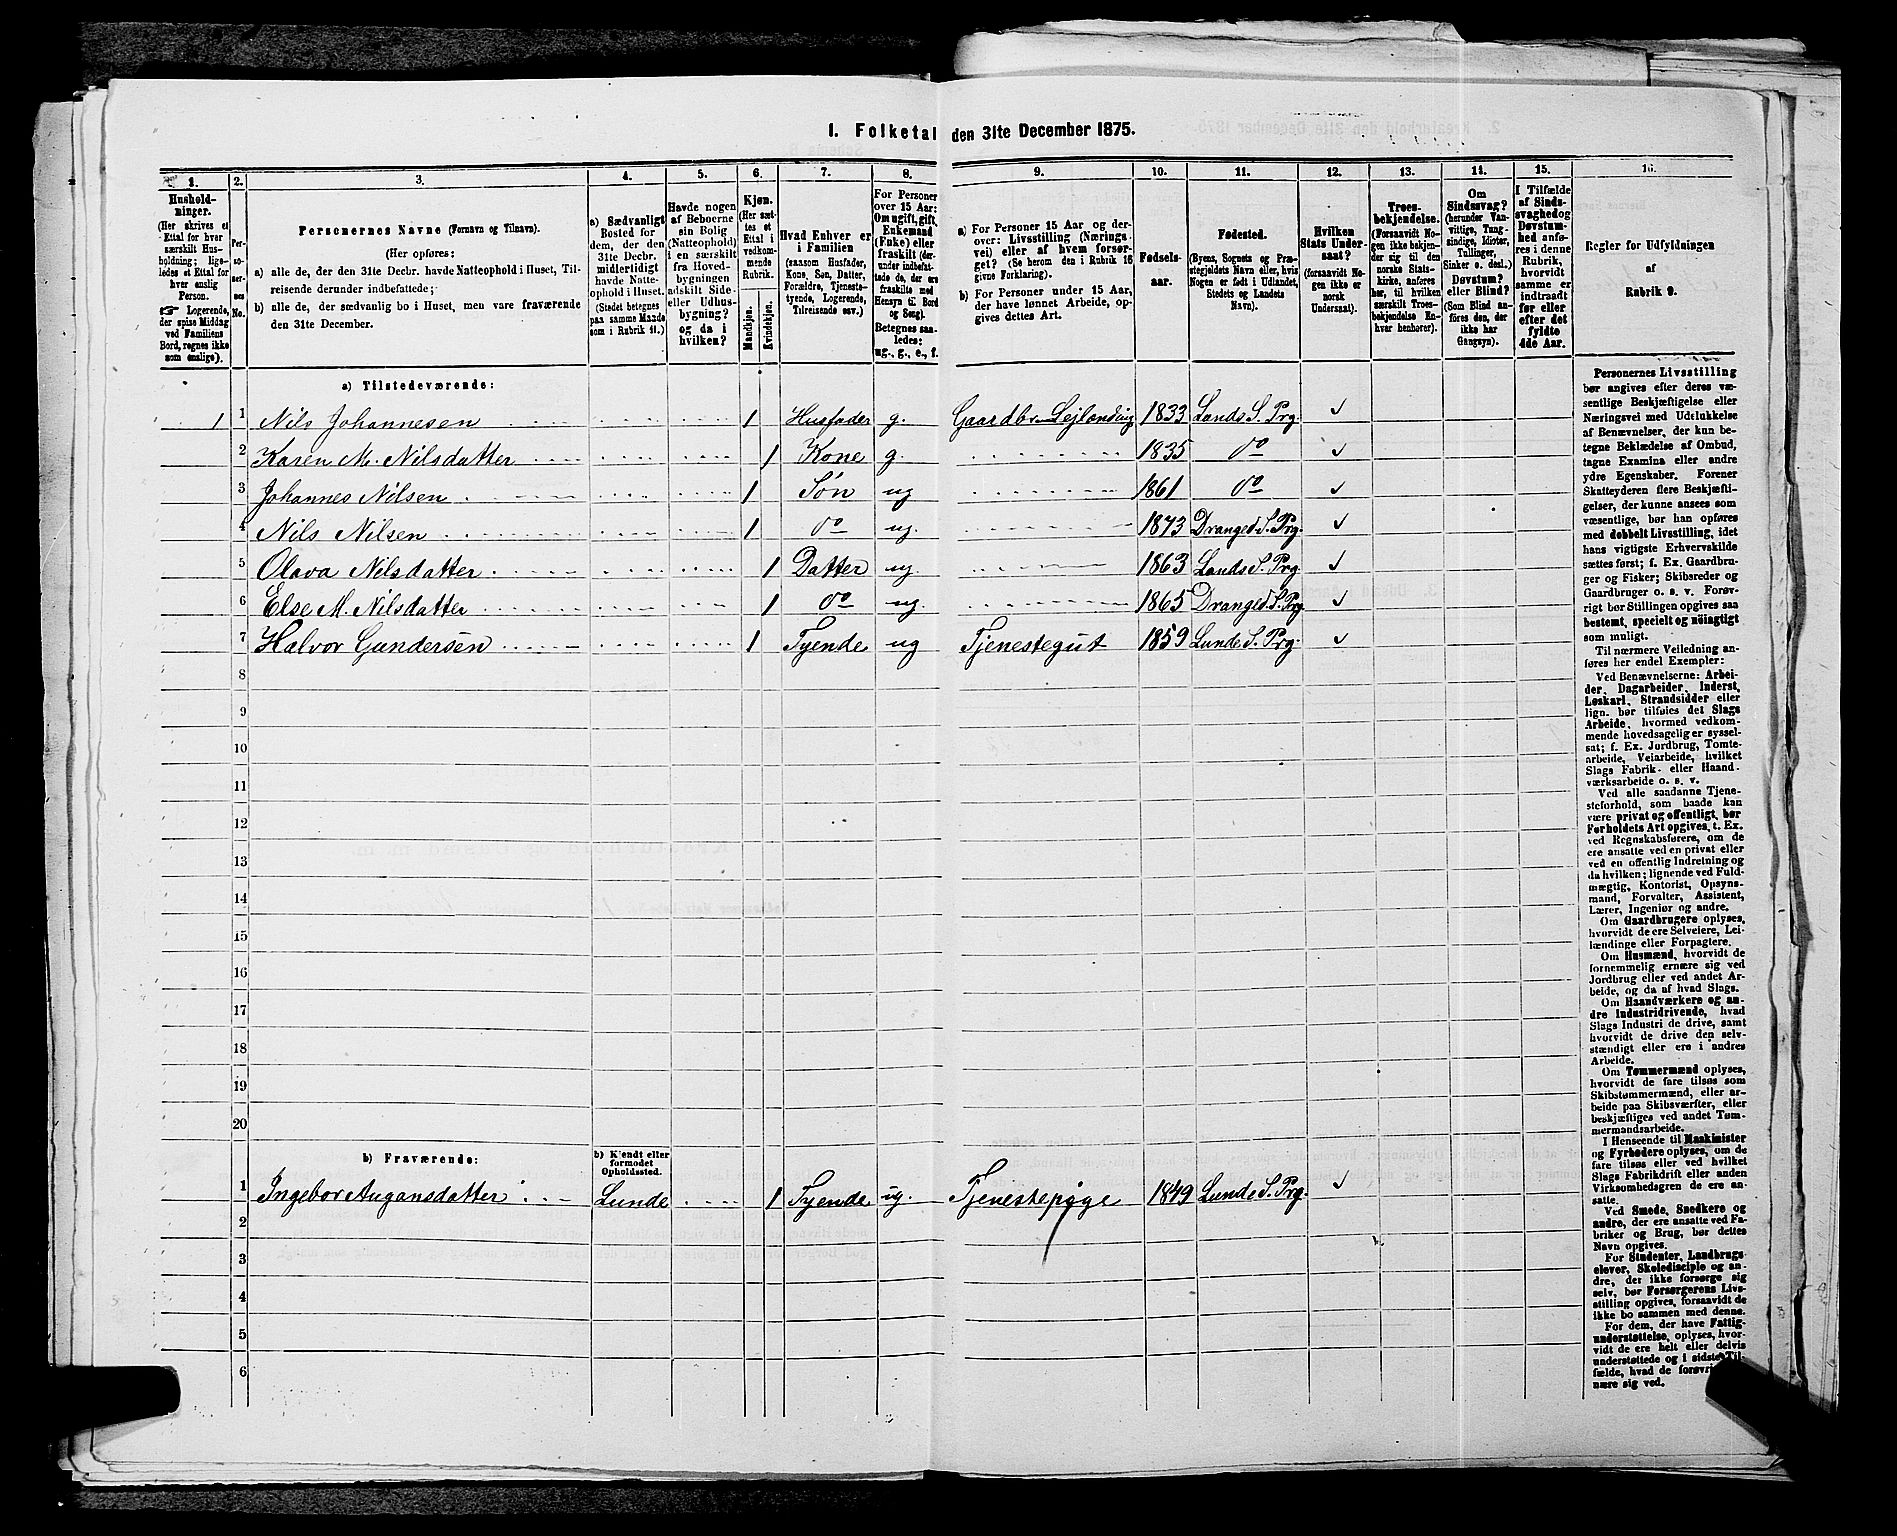 1. Folketal den 31te December 1875.
1. 2. 3. 4. 5. 6. 7. 8. 9. 10. 11. 12. 13. 14. 15. 16.
Husholdninger.
(Her skrives et
Ettal for hver
særskilt Husholdning;
ligeledes
et Ettal for
hver enslig
Person.
☞ Logerende,
der spise Middag
ved Familiens
Bord, regnes ikke
som enslige).
Personernes No.
Personernes Navne (Fornavn og Tilnavn).
(Her opføres:
a) alle de, der den 31te Decbr. havde Natteophold i Huset, Tilreisende
derunder indbefattede;
b) alle de, der sædvanlig bo i Huset, men vare fraværende
den 31te December.
a) Sædvanligt
Bosted for
dem, der den
31te Decbr.
midlertidigt
havde Natteophold
i Huset.
(Stedet betegnes
paa samme Maade
som i Rubrik 11.)
Havde nogen
af Beboerne
sin Bolig
(Natteophold)
i en særskilt
fra Hovedbygningen
adskilt Side-
eller Udhusbygning?
og da i
hvilken?
Kjøn.
(Her sættes
et
Ettal i
vedkommende
Rubrik.
Mandkjøn.
Kvindekjøn.
Hvad Enhver er
i Familien
(saasom Husfader,
Kone, Søn, Datter,
Forældre, Tjenestetyende,
Logerende,
Tilreisende osv.)
For Personer
over 15 Aar:
Om ugift, gift,
Enkemand
(Enke) eller
fraskilt (derunder
indbefattede
de, der ere
fraskilte med
Hensyn til Bord
og Seng).
Betegnes saaledes:
ug., g., e., f.
a) For Personer 15 Aar og derover:
Livsstilling (Næringsvei)
eller af hvem forsørget?
(Se herom den i Rubrik 16
givne Forklaring).
b) For Personer under 15 Aar,
der have lønnet Arbeide, opgives
dettes Art.
Fødselsaar.
Fødested.
(Byens, Sognets og Præstegjeldets
Navn eller, hvis
Nogen er født i Udlandet,
Stedets og Landets
Navn).
Hvilken
Stats Undersaat?
(forsaavidt Nogen
ikke er
norsk
Undersaat).
Troesbekjendelse.
(Forsaavidt Nogen
ikke bekjender
sig til den
norske Statskirke,
anføres
her, til hvilken
særskilt Troesbekjendelse
Enhver
henhører).
Om
Sindssvag?
(herunder Vanvittige,
Tungsindige,
Idioter,
Tullinger,
Sinker o. desl.)
Døvstum?
eller Blind?
(Som Blind anføres
den, der
ikke har
Gangsyn).
I Tilfælde
af Sindssvaghed
og
Døvstumhed
anføres
i denne
Rubrik,
hvorvidt
samme er
indtraadt
før eller
efter det
fyldte
4de Aar.
Regler for Udfyldningen
af
Rubrik 9.
a) Tilstedeværende:
1 1 Nils Johannesen 1 Husfader g. Gaardbr. Lejlænding 1833 Lands S. Prg. ✓
2 Karen M. Nilsdatter 1 Kone g. 1835 do ✓
3 Johannes Nilsen 1 Søn ug 1861 do ✓
4 Nils Nilsen 1 do ug. 1873 Dranged. S. Prg. ✓
5 Olava Nilsdatter 1 Datter ug 1863 Lands S. Prg. ✓
6 Else M. Nilsdatter 1 do ug. 1865 Dranged. S. Prg. ✓
7 Halvor Gundersen 1 Tyende ug Tjenestegut 1859 Lunde S. Prg. ✓
8
9
10
11
12
13
14
15
16
17
18
19
20
b) Fraværende:
b) Kjendt eller
formodet
Opholdssted.
1 Ingebor Augansdatter Lunde 1 Tyende ug. Tjenestepige 1849 Lunde S. Prg. ✓
2
3
4
5
6
Personernes Livsstilling
bør angives efter deres væsentlige
Beskjæftigelse eller
Næringsvei med Udelukkelse
af Benævnelser, der kun betegne
Beklædelse af Ombud,
tagne Examina eller andre
ydre Egenskaber. Forener
Skatteyderen flere Beskjæftigelser,
der kunne ansees som
væsentlige, bør han opføres
med dobbelt Livsstilling, idet
hans vigtigste Erhvervskilde
sættes først; f. Ex. Gaardbruger
og Fisker; Skibsreder og
Gaardbruger o. s. v. Forøvrigt
bør Stillingen opgives saa
bestemt, specielt og nøiagtigt
som muligt.
Til nærmere Veiledning anføres
her endel Exempler:
Ved Benævnelserne: Arbeider,
Dagarbeider, Inderst,
Løskarl, Strandsidder eller
lign. bør tilføies det Slags
Arbeide, hvormed vedkommende
hovedsagelig er sysselsat;
f. Ex. Jordbrug, Tomtearbeide,
Veiarbeide, hvilket
Slags Fabrik- eller Haandværksarbeide
o. s. v.
Ved alle saadanne Tjenesteforhold,
som baade kan
være privat og offentligt, bør
Forholdets Art opgives, t. Ex.
ved Regnskabsførere, om de
ere ansatte ved en privat eller
ved en offentlig Indretning og
da hvilken; lignende ved Fuldmægtig,
Kontorist, Opsynsmand,
Forvalter, Assistent,
Lærer, Ingeniør og andre.
Om Gaardbrugere oplyses,
hvorvidt de ere Selveiere, Leilændinge
eller Forpagtere.
Om Husmænd, hvorvidt de
fornemmelig ernære sig ved
Jordbrug eller ved andet Arbeide,
og da af hvad Slags.
Om Haandværkere og andre
Industridrivende, hvad
Slags Industri de drive, samt
hvorvidt de drive den selvstændigt
eller ere i andres
Arbeide.
Om Tømmermænd oplyses,
hvorvidt de fare tilsøs som
Skibstømmermænd, eller arbeide
paa Skibsværfter, eller
beskjæftiges ved andet Tømmermandsarbeide.
I Henseende til Maskinister
og Fyrbødere oplyses, om de
fare tilsøs eller ved hvilket
Slags Fabrikdrift eller anden
Virksomhedsgren de ere ansatte.
Ved Smede, Snedkere og
andre, der ere ansatte ved Fabriker
og Brug, bør dettes
Navn opgives.
For Studenter, Landbrugselever,
Skoledisciple og andre,
der ikke forsørge sig
selv, bør Forsørgerens Livsstilling
opgives, forsaavidt de
ikke bo sammen med denne.
For dem, der have Fattigunderstøttelse,
oplyses, hvorvidt
de ere helt eller delvis
understøttede og i sidste Tilfælde,
hvad de forøvrigt
nære sig ved.